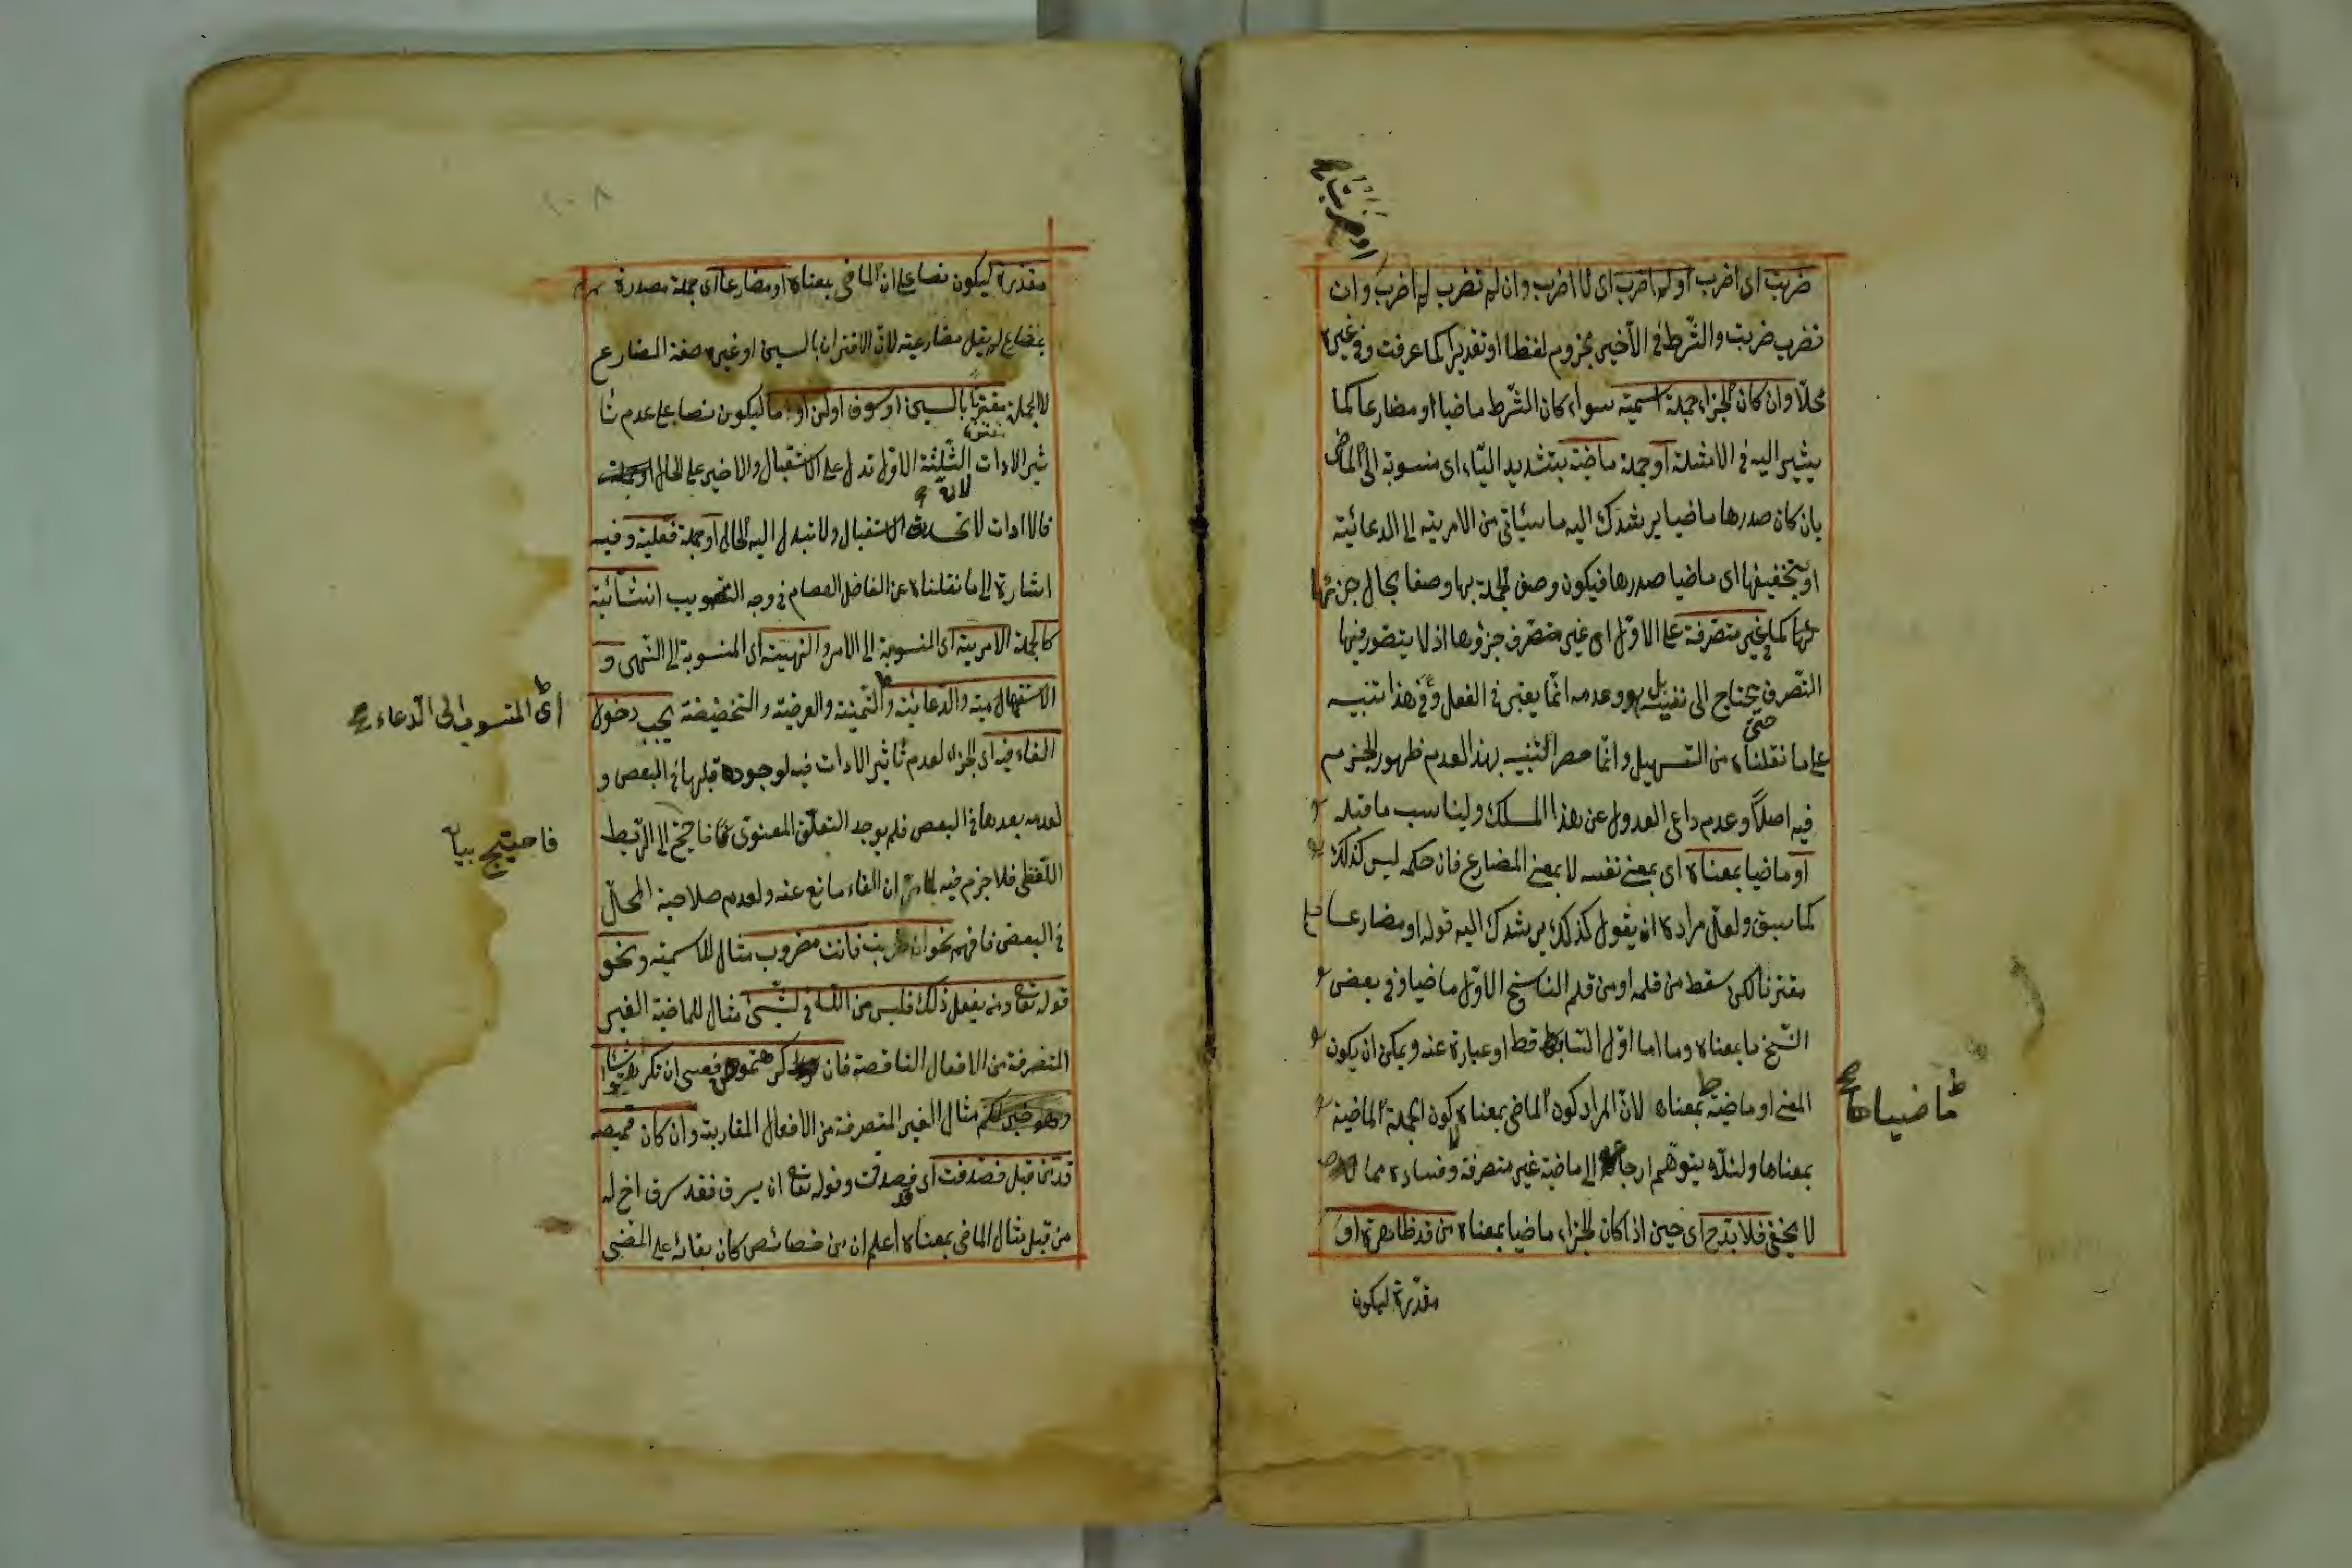 او ضربت
ضربت اى اضرب او لم اضرب اى لا اضرب وان لم تضرب لم اضرب وان
تضرب ضربت والشّرط فى الأخير مجزوم لفظا او تقديرا كما عرفت وفى غيره
محلّا وان كان الجزاء جملة اسمية سواء كان الشّرط ماضيا او مضارعا كما
يشير اليه فى الامثلة او جملة ماضيّة بتشديد اليّاء اى منسوبة الى الماضى
بان كان صدرها ماضيا يرشدك اليه ما سيأتى من الامرية الى الدعائية
او بتخفيفها اى ماضيا صدرها فيكون وصف الجملة بها وصفا بحال جزئها
غير متصرفة على الاوّل اى غير متصرف جزؤها اذ لا يتصور فيها
التّصرف حتى يحتاج الى نفيه بل هو وعدمه انّما يعتبر فى الفعل وفى هذا تنبيه
على ما نقلناه من التسهيل وانّما حصر التنبيه بهذا لعدم ظهور الجزم
فيه اصلًا وعدم داعى العدول عن هذا المسلك وليناسب ما قبله
او ماضيا بمعناه اى بمعنى نفسه لا بمعنى المضارع فان حكمه ليس كذلك
كما سبق ولعلّ مراده ان يقول كذلك يرشدك اليه قوله او مضارعا
مقترنا لكن سقط من قلمه او من قلم النّاسخ الاوّل ماضيا وفى بعض
النّسخ ما بمعناه وما اما اوّل السّاقط فقط او عبارة عنه ويمكن ان يكون
المعنى او ماضيّة بمعناه لانّ المراد كون الماضى بمعناه كون الجملة الماضية
بمعناها ولئلّا يتوهّم ارجاعه الى ماضية غير متصرفة وفساده مما
لا يخفى فلا بدّ ح اى حين اذ كان الجزاء ماضيا بمعناه من قد ظاهرة او
مقدّرة ليكون
ماضياها
١٠٨
مقدّرة ليكون نصا على ان الماضى بمعناه او مضارعا اى جملة مصدرة
بمضارع لم يقل مضارعية لانّ الاقتران بالسين او غيره صفة المضارع
لا الجملة مقترنا بالسين او سوف او لن او ما ليكون نصا على عدم تأ
ثير الادات الثّلثة الاوّل تدل على الاستقبال والاخير على الحال
فالادات لا تحدث الاستقبال ولا تبدل اليه الحال او جملة فعلية وفيه
اشارة الى ما نقلناه عن الفاضل العصام فى وجه التصويب انشائية
كالجملة الامرية اى المنسوبة الى الامر والنهيية اى المنسوبة الى النّهى و
الاستفهامية والدّعائية والتّمنية والعرضية والتحضيضية يجب دخول
الفاء فيه اى الجزاء لعدم تأثير الادات فيه لوجوده قبلها فى البعض و
لعدمه بعدها فى البعض فلم يوجد التعلّق المعنوى فاحتيج الى الرّبط
اللّفظى فلا جزم فيه لما مرّ ان الفاء مانع عنه ولعدم صلاحية المحلّ
فى البعض فافهم نحو ان ضربت فانت مضروب مثال للاسمية ونحو
قوله تعا ومن يفعل ذلك فليس من اللّه فى شئ مثال للماضية الغير
المتصرفة من الافعال الناقصة فان كرهتموهن فعسى ان تكرهوا شيئا
مثال الغير المتصرفة من الافعال المقاربة وان كان قميصه
قدّ من قبل فصدقت اى فقد صدقت وقوله تعا ان يسرق فقد سرق اخ له
من قبل مثال الماضى بمعناه اعلم ان من خصائص كان بقائه على المضى
اى المنسوب الى الدّعاء
فاحتيج بيا